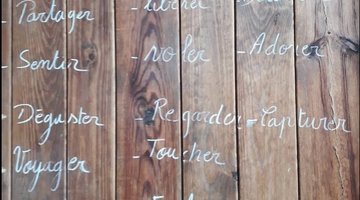 - Partager
- Sentir
- Déguster
- Voyager
- voler
- Regarder
- Toucher
- Adorer
- Capturer